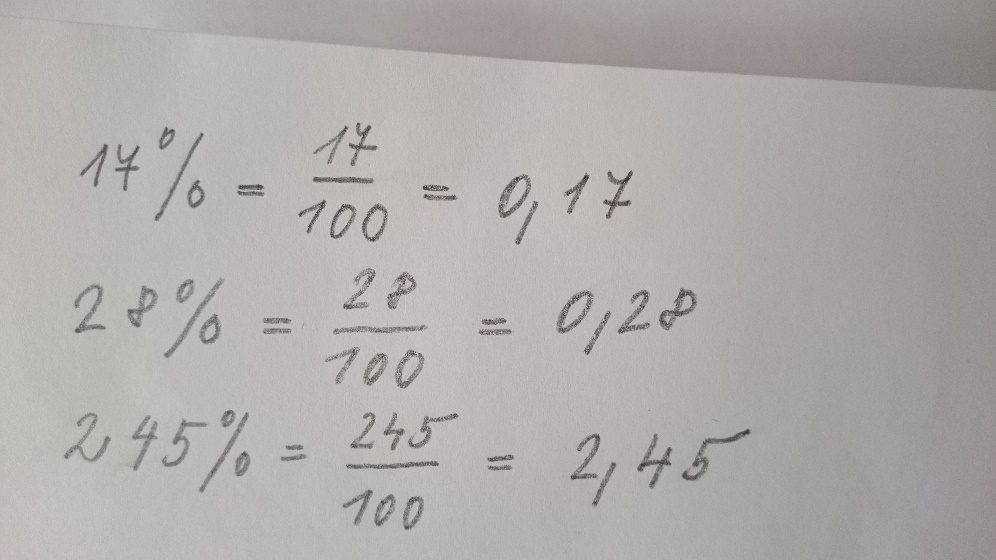 17% = 17/100 = 0,17
28% = 28/100 = 0,28
245% = 245/100 = 2,45